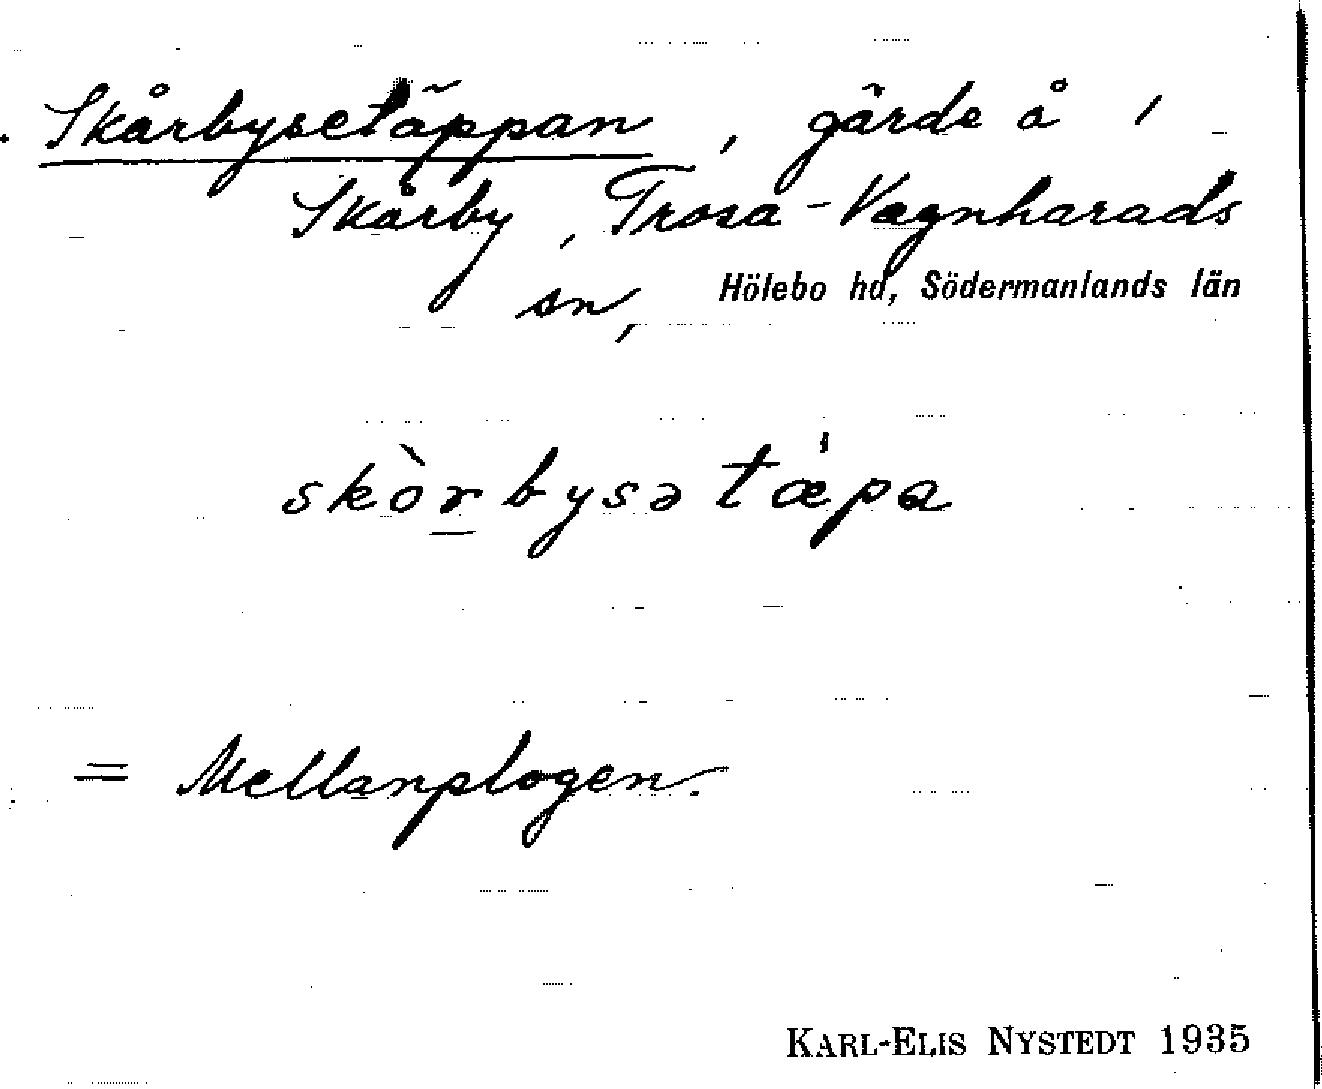 Skårbysetäppan, gärde å 1
Skårby, Trosa-Vagnharads
sn, Hölebo hd, Södermanlands län
skòrbysətæ̍pa
= Mellanplogen.
KARL-ELIS NYSTEDT 1935